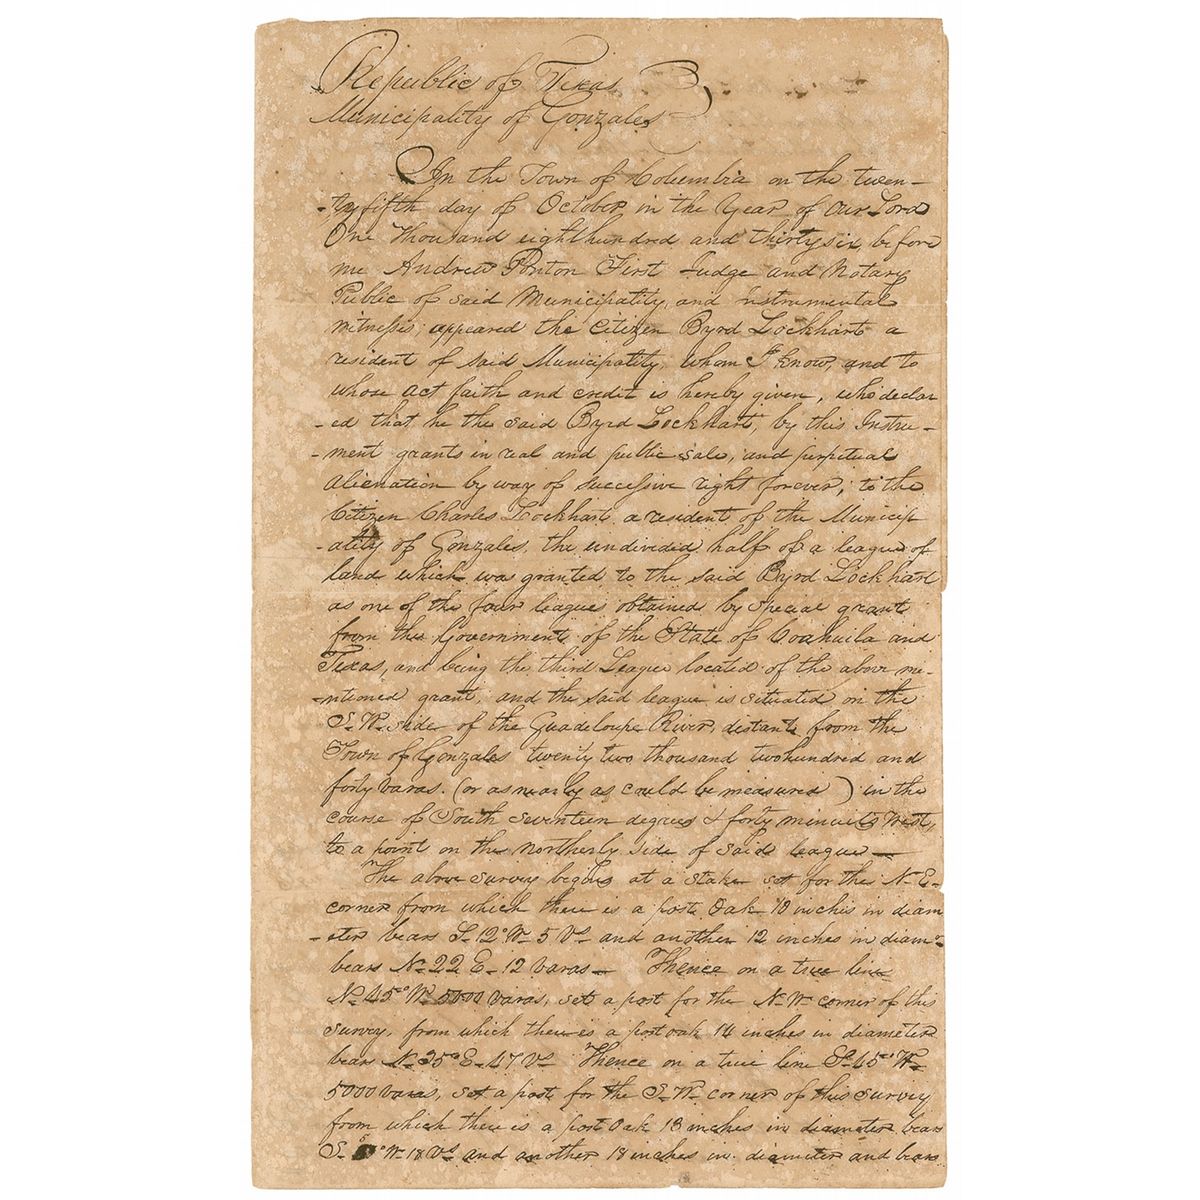 Republic of Texas
Municipality of Gonzales
In the Town of Columbia on the twen-
-ty fifth day of October in the Year of Our Lord
One thousand eight hundred and thirty six, before
me Andrew Ponton First Judge and Notary
Public of said Municipality, and Instrumental
witnesses; appeared the Citizen Byrd Lockhart a
resident of said Municipality, whom I know, and to
whose act faith and credit is hereby given, who declar
-ed that he the said Byrd Lockhart, by this Instru-
-ment grants in real and public sale, and perpetual
alienation by way of successive right forever, to the
Citizen Charles Lockhart a resident of the Municip
-ality of Gonzales, the undivided half of a league of
land which was granted to the said Byrd Lockhart
as one of the four leagues obtained by Special grant
from the Government of the State of Coahuila and
Texas, and being the third League located of the above me-
-ntioned grant, and the said league is situated on the
S. W. side of the Guadeloupe River, distant from the
Town of Gonzales twenty two thousand two hundred and
forty varas. (or as nearly as could be measured) in the
course of South seventeen degrees & forty minuits West,
to a point on the northerly side of said league —
The above survey begins at a stake set for the N. E-
corner from which there is a post Oak 10 inches in diam
-eter bears S- 12 W- 5 Vs and another 12 inches in diam-
bears N- 22 E- 12 varas — Thence on a true line
N- 45° W- 5000 varas, set a post for the N- W- corner of this
survey, from which there is a post oak 14 inches in diameter
bears N- 35° E- 47 Vs Thence on a true line S- 45° W-
5000 varas, set a post for the S- W- corner of this survey
from which there is a post Oak 13 inches in diameter bears
S- 5° W- 18 Vs and another 18 inches in diameter and bears